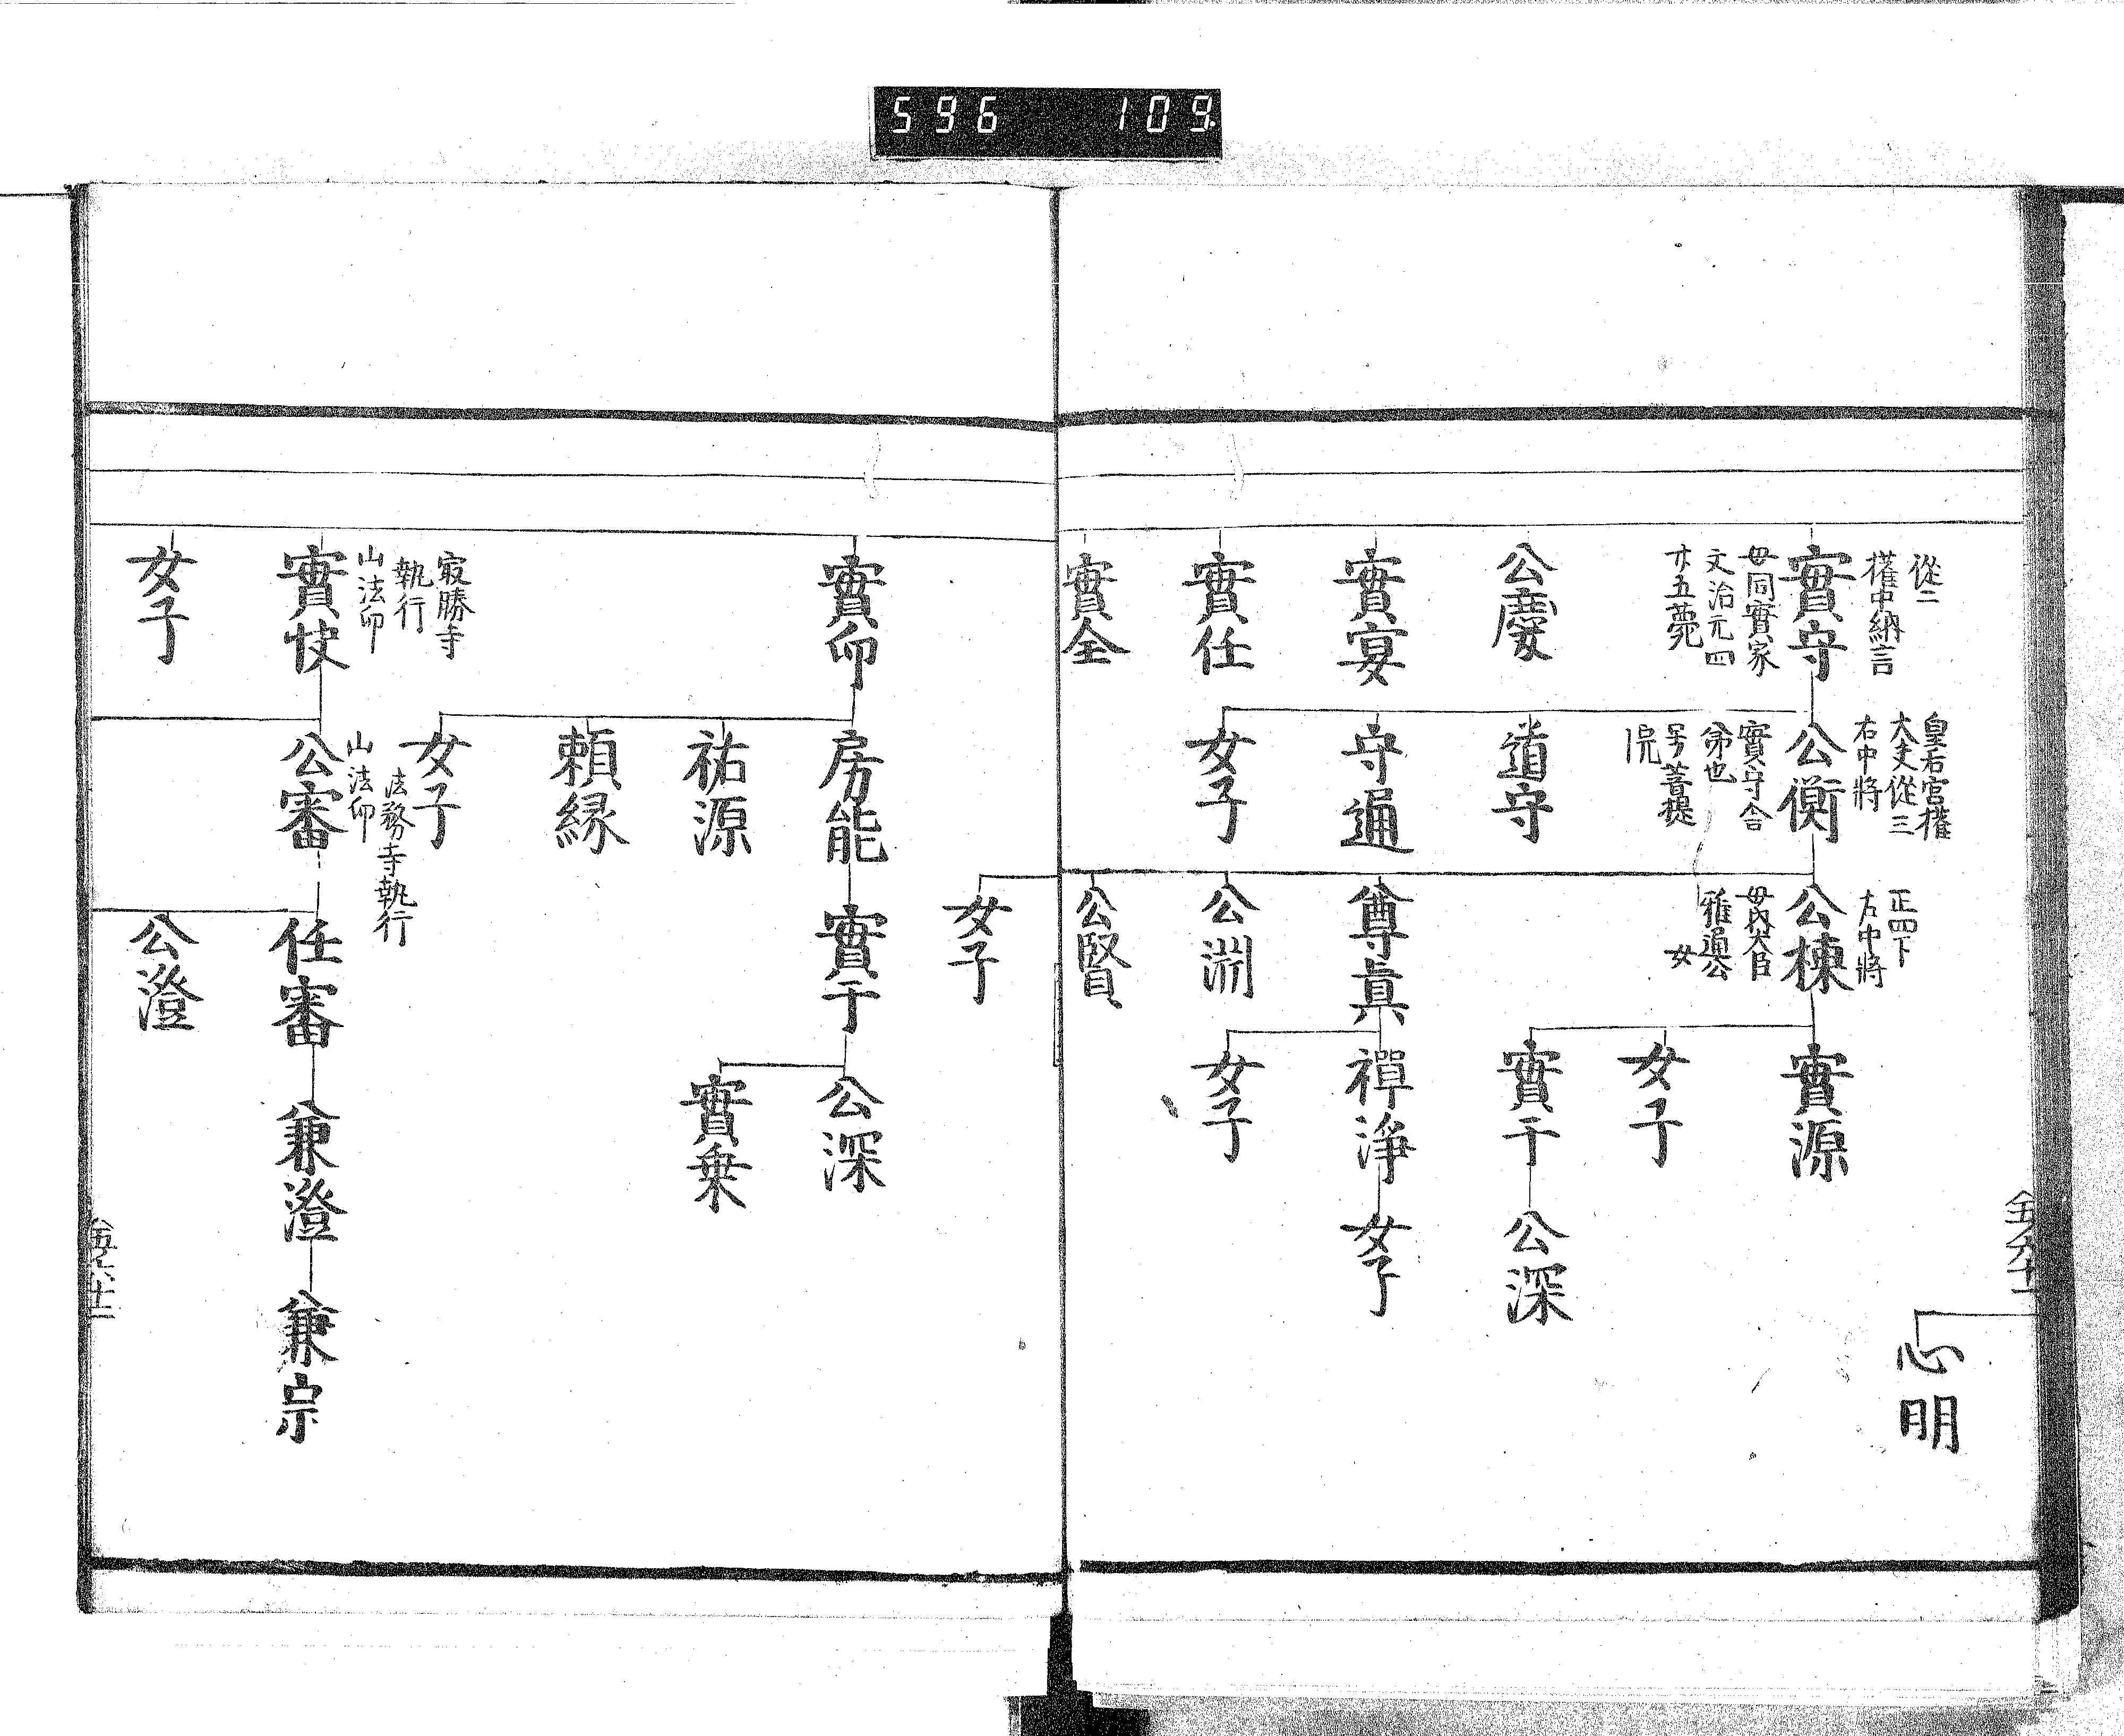 596 109
心明
從二
權中納言
實守
母同實家
文治元四
廿五薨
皇后宮權
大夫從三
右中將
公衡
實守舍
弟也
号菩提
院
正四下
左中將
公棟
母内大臣
雅通公
女
實源
女子
實干
公深
公慶
道守
實宴
守通
尊真
禪淨
女子
女子
實任
女子
公淵
實全
公賢
女子
實印
房能
實于
公深
實乗
祐源
頼縁
女子
最勝寺
執行
山法印
法務寺執行
山法印
公審
任審
兼澄
兼宗
女子
公澄